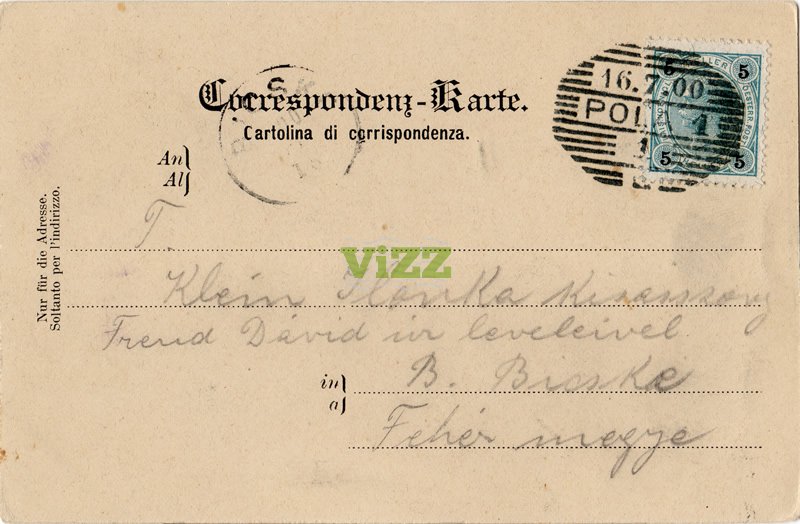 Correspondenz-Karte.
Cartolina di corrispondenza.
16.7.00
POL
1
5 5
5 5
An
Al
Nur für die Adresse.
Soltanto per l'indirizzo.
T.
ViZZ
Klein Ilonka kisasszony
Freud Dávid úr leveleivel
in
a
B. Bicske
Fehér megye